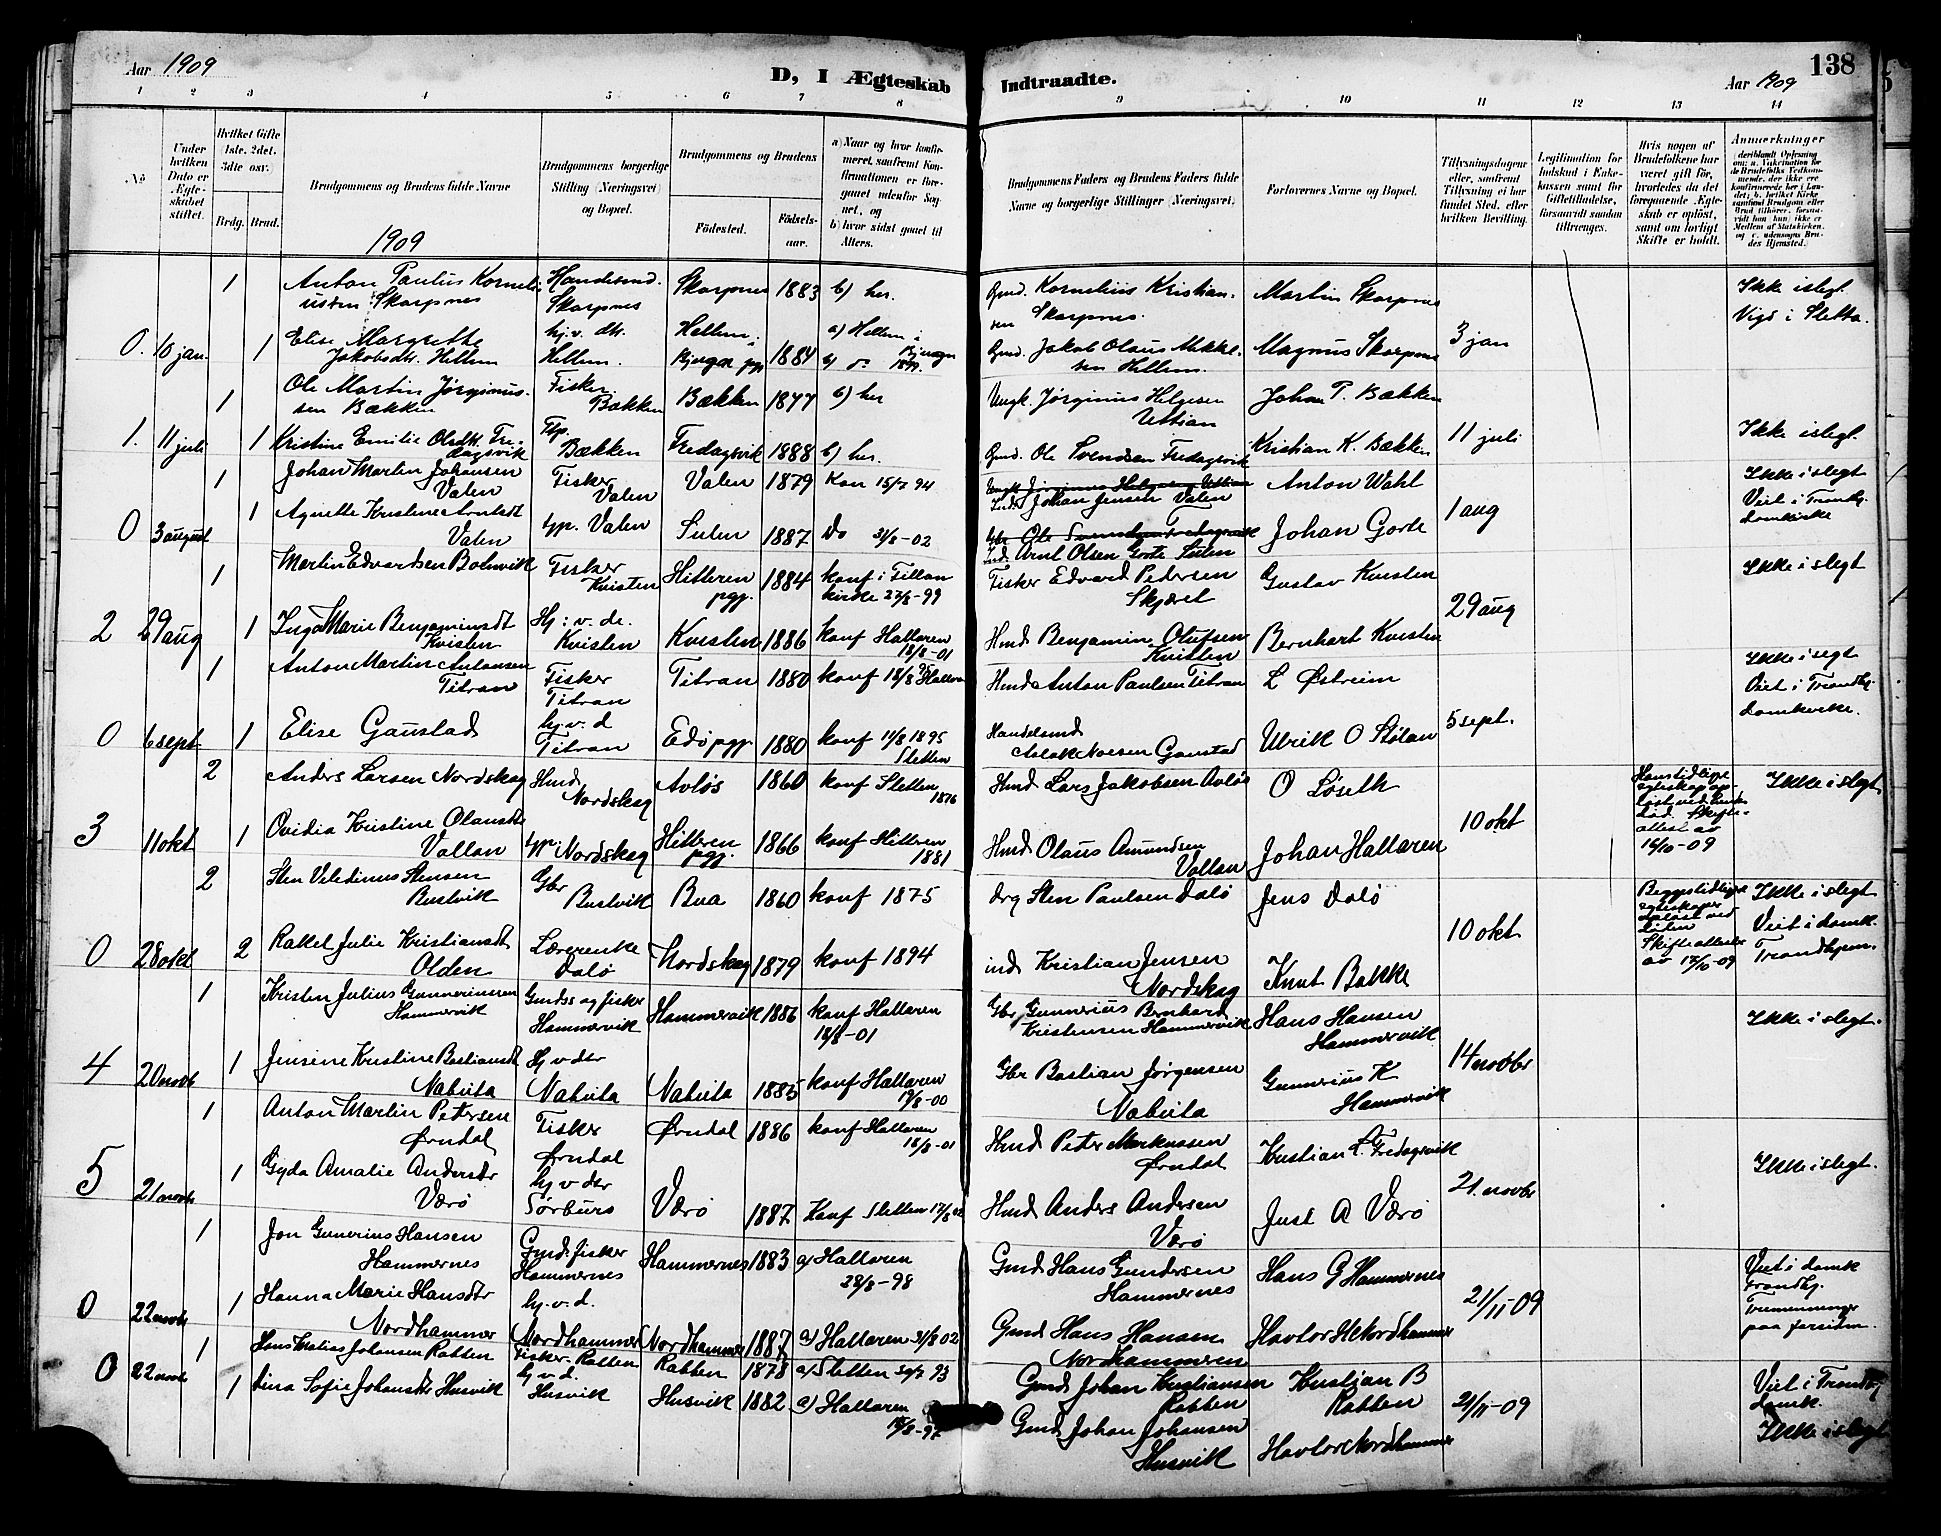 Aar 1909
D, I Ægteskab
Indtraadte.
Aar 1909
138
1 2 3 4 5 6 7 8 9 10 11 12 13 14
No
Under hvilken Dato er Ægteskabet stiftet.
Hvilket Gifte (1ste, 2det, 3dte osv.)
Brdg. Brud.
Brudgommens og Brudens fulde Navne
Brudgommens borgerlige Stilling (Næringsvei) og Bopæl.
Brudgommens og Brudens
Födested.
Födselsaar.
a) Naar og hvor konfirmeret, saafremt Konfirmationen er foregaaet udenfor Sognet, og
b) hvor sidst gaaet til Alters.
Brudgommens Faders og Brudens Faders fulde Navne og borgerlige Stillinger (Næringsvei).
Forlovernes Navne og Bopæl.
Tillysningsdagene eller, saafremt Tillysning ei har fundet Sted, efter hvilken Bevilling.
Legitimation for Indskud i Enkekassen samt for Giftetilladelse, forsaavidt saadan tiltrænges.
Hvis nogen af Brudefolkene har været gift før, hvorledes da det foregaaende Ægteskab er opløst, samt om lovligt Skifte er holdt.
Anmærkninger
1909
1 Anton Paulus Korneliussen Skarpnes Handelsmd. Skarpnes Skarpnes 1883 b) her. Gmd. Kornelius Kristiansen Skarpnes. Martin Skarpnes Ikke i slegt. Vigd i Sletta.
0. 10 jan. 1 Elise Margrethe Jakobsdtr. Hellem hj.v. dtr. Hellem. Hellem i Bjugn pgj 1884 a) Hellem i Bjugn Gmd. Jakob Olaus Mikkelsen Hellem. Magnus Skarpnes 3 jan
1 Ole Martin Jørginussen Bækken Fisker Bækken Bækken 1877 b) her Ungk. Jørginus Helgesen Uttian Johan P. Bækken
1. 11 juli 1 Kristine Emilie Olsdtr. Fredagsvik Bækken Fredagsvik 1888 b) her. Gmd. Ole Svendsen Fredagsvik Kristian K. Bækken 11 juli Ikke i slegt.
1 Johan Martin Johansen Valen Fisker Valen Valen 1879 Kon 15/7 94 Johan Jensen Valen Anton Wahl Ikke i slegt Viet i Trondhj. domkirke
0 3 august 1 Agnette Kristine Arntsdt Valen Valen Sulen 1887 Do 31/8-02 Ind. Arnt Olsen Gorte Sulen Johan Gorte 1 aug
1 Martin Edvardsen Bolmvik Fisker Kvisten Hitteren pgj. 1884 konf i Fillan kirke 27/8-99 Fisker Edvard Pedersen Skjæret Gustav Kvisten Ikke i slegt
2 29 aug 1 Inga Marie Benjaminsdt Kvisten Hj: v. de. Kvisten Kvisten 1886 konf Hallaren 18/8-01 Hmd Benjamin Olufsen Kvisten Bernhart Kvisten 29 aug
1 Anton Martin Antonsen Titran Fisker Titran Titran 1880 konf 18/8 95 Hallaren Hmd Anton Paulsen Titran L Østreim Ikke i slegt Viet i Trondhj. domkirke.
0 6 sept. 1 Elise Gaustad hj.v.d Titran Edø pgj. 1880 konf 11/8 1895 Sletten Handelsmd Aslak Noesen Gaustad Ulrik O Stølan 5 sept.
2 Anders Larsen Nordskag Hmd Nordskag Avløs 1860 konf Sletten 1876 Hmd Lars Jakobsen Avløs O Løseth Ikke i slegt
3 11 okt 1 Ovidia Kristine Olausdt Vollan Nordskag Hitteren pgj. 1866 konf Hitteren 1881 Hmd Olaus Amundsen Vollan Johan Hallaren 10 okt attest av 16/10-09
2 Sten Veledinus Stensen Bustvik Gbr Bustvik Bua 1860 konf 1875 Sten Paulsen Dalø Jens Dalø Ikke i slegt Viet i domk. Trondhjem.
0 28 okt 2 Rakel Julie Kristiansdt Olden Lærerenke Dalø Nordskag 1879 konf 1894 ind Kristian Jensen Nordskag Knut Bakke 10 okt Skifteattester av 13/10-09
1 Kristen Julius Gunneriussen Hammervik Gmdss og fisker Hammervik Hammervik 1886 konf Hallaren 18/8-01 Gbr Gunnerius Bernhard Kristensen Hammervik Hans Hansen Hammervik Ikke i slegt.
4 20 novb 1 Jensine Kristine Bastiansdt Nabeita Hj v dtr Nabeita Nabeita 1885 konf Hallaren 19/8-00 Gbr Bastian Jørgensen Nabeita Gunnerius K Hammervik 14 novbr
1 Anton Martin Petersen Ørndal Fisker Ørndal Ørndal 1886 konf Hallaren 18/8-01 Hmd Peter Markussen Ørndal Kristian L. Fredagsvik
5 21 novb 1 Gyda Amalie Andersdr Værø hj v dtr Sørburø Værø 1887 Konf Sletten 17/8 02 Hmd Anders Andersen Værø Just A Værø 21. novbr Ikke i slegt.
1 Jon Gunerius Hansen Hammernes Gmds. fisker Hammernes Hammernes 1883 a) Hallaren 28/8-98 Gmd Hans Gundersen Hammernes Hans G Hammernes Viet i domk Trondhj.
0 22 novb 1 Hanna Marie Hansdtr Nordhammer hj.v.d. Nordhammer Nordhammer 1887 a) Hallaren 31/8 02 Gmd Hans Hansen Nordhammeren Havtor H Nordhammer 21/11 09 paa forsiden.
1 Jens Kristian Johansen Rabben Fisker. Rabben Rabben 1878 a) Sletten 30/7 93 Gmd Johan Kristiansen Rabben Kristian B Rabben Viet i Trondhj domk.
0 22 novb 1 Dina Sofie Johansdtr Husvik hj v d. Husvik Husvik 1882 a) Hallaren 15/8-97 Gmd Johan Johansen Husvik Havtor Nordhammer 21/11-09 Ikke i slegt